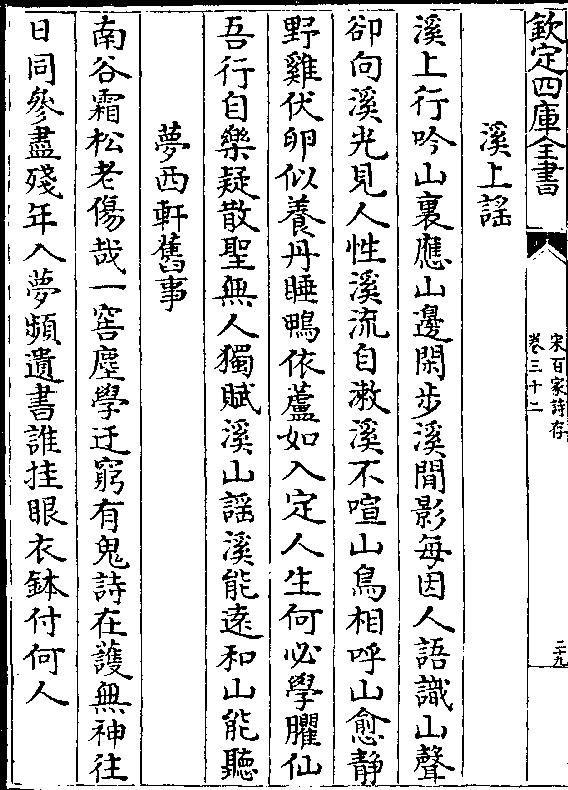 欽定四庫全書
宋百家詩存
卷三十二
二十九
溪上謡
溪上行吟山裏應山邊閑步溪間影每因人語識山聲
卻向溪光見人性溪流自漱溪不喧山鳥相呼山愈静
野雞伏卵似養丹睡鴨依蘆如入定人生何必學臞仙
吾行自樂疑散聖無人獨賦溪山謡溪能逺和山能聽
夢西軒舊事
南谷霜松老傷哉一窖塵學迂窮有鬼詩在䕶無神往
日同參盡殘年入夢頻遺書誰挂眼衣鉢付何人